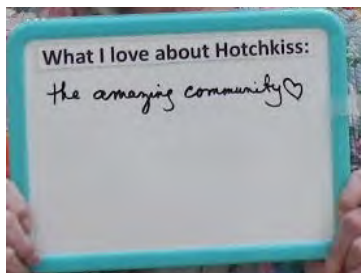 What I love about Hotchkiss:
the amazing community♡